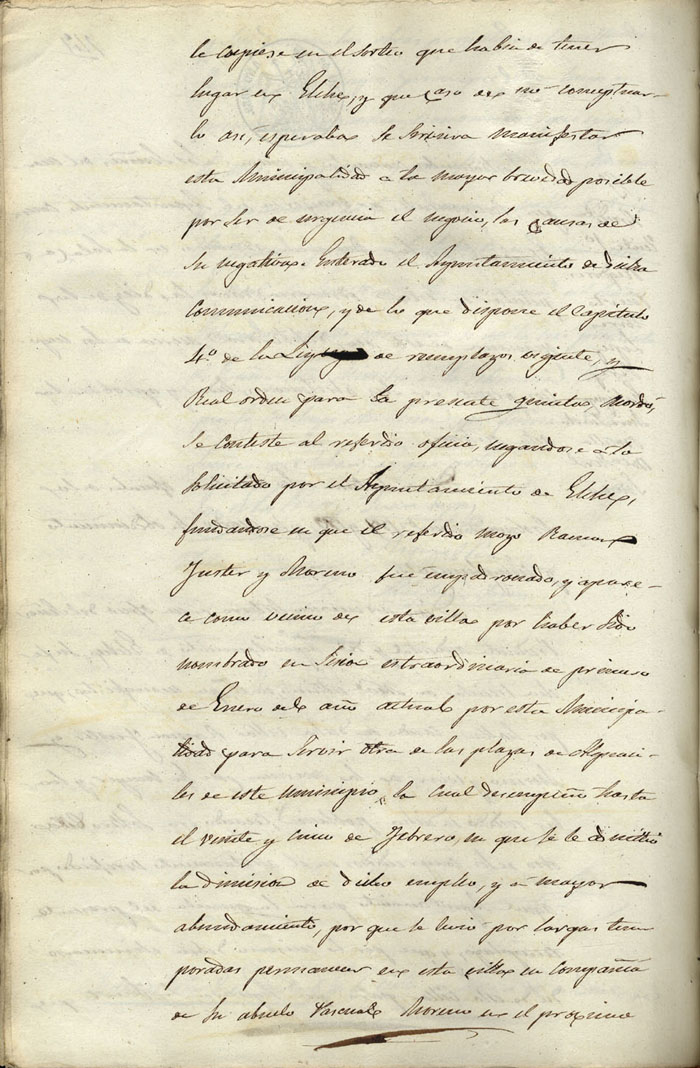 le cupiese en el sorteo que habia de tener
lugar en Elche, y que caso de no conceptuar-
lo asi, esperaba se sirviera manifestar
esta Municipalidad a la mayor brevedad posible
por ser de urgencia el negocio, las causas de
su negativa. Enterado el Ayuntamiento de dicha
comunicacion, y de lo que dispone el Capitulo
4.º de la Ley de remplazos vigente, y
Real orden para la presente quinta, acordó,
se conteste al referido oficio, negandose a lo
solicitado por el Ayuntamiento de Elche,
fundandose en que el referido mozo Ramon
Juster y Moreno fué empadronado, y apare-
ce como vecino de esta villa por haber sido
nombrado en sesion estraordinaria de primero
de Enero del año actual por esta Municipa-
lidad para servir otra de las plazas de Alguaci-
les de este municipio, la cual desempeñó hasta
el veinte y cinco de Febrero, en que se le admitió
la dimision de dicho empleo, y á mayor
abundamiento, por que le vió por largas tem
poradas permanecer en esta villa en compañia
de su abuelo Pascual Moreno en el proximo